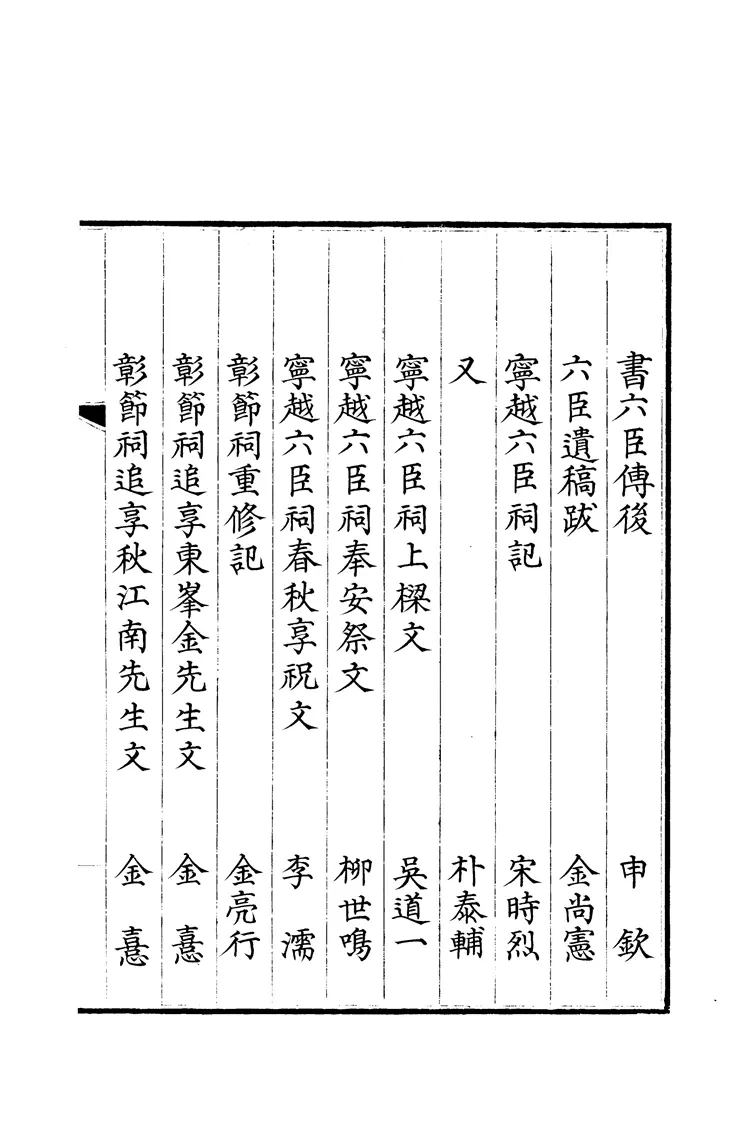 書六臣傳後 申欽
六臣遺稿跋 金尚憲
寧越六臣祠記 宋時烈
又 朴泰輔
寧越六臣祠上樑文 吳道一
寧越六臣祠奉安祭文 柳世鳴
寧越六臣祠春秋享祝文 李濡
彰節祠重修記 金亮行
彰節祠追享東峯金先生文 金憙
彰節祠追享秋江南先生文 金憙